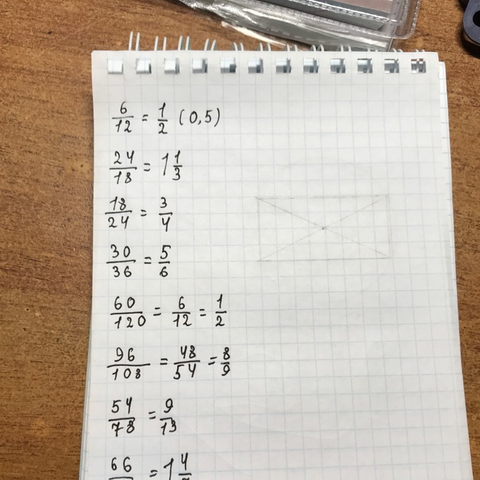 6/12 = 1/2 (0,5)
24/18 = 1 1/3
18/24 = 3/4
30/36 = 5/6
60/120 = 6/12 = 1/2
96/108 = 48/54 = 8/9
54/78 = 9/13
66 = 1 4